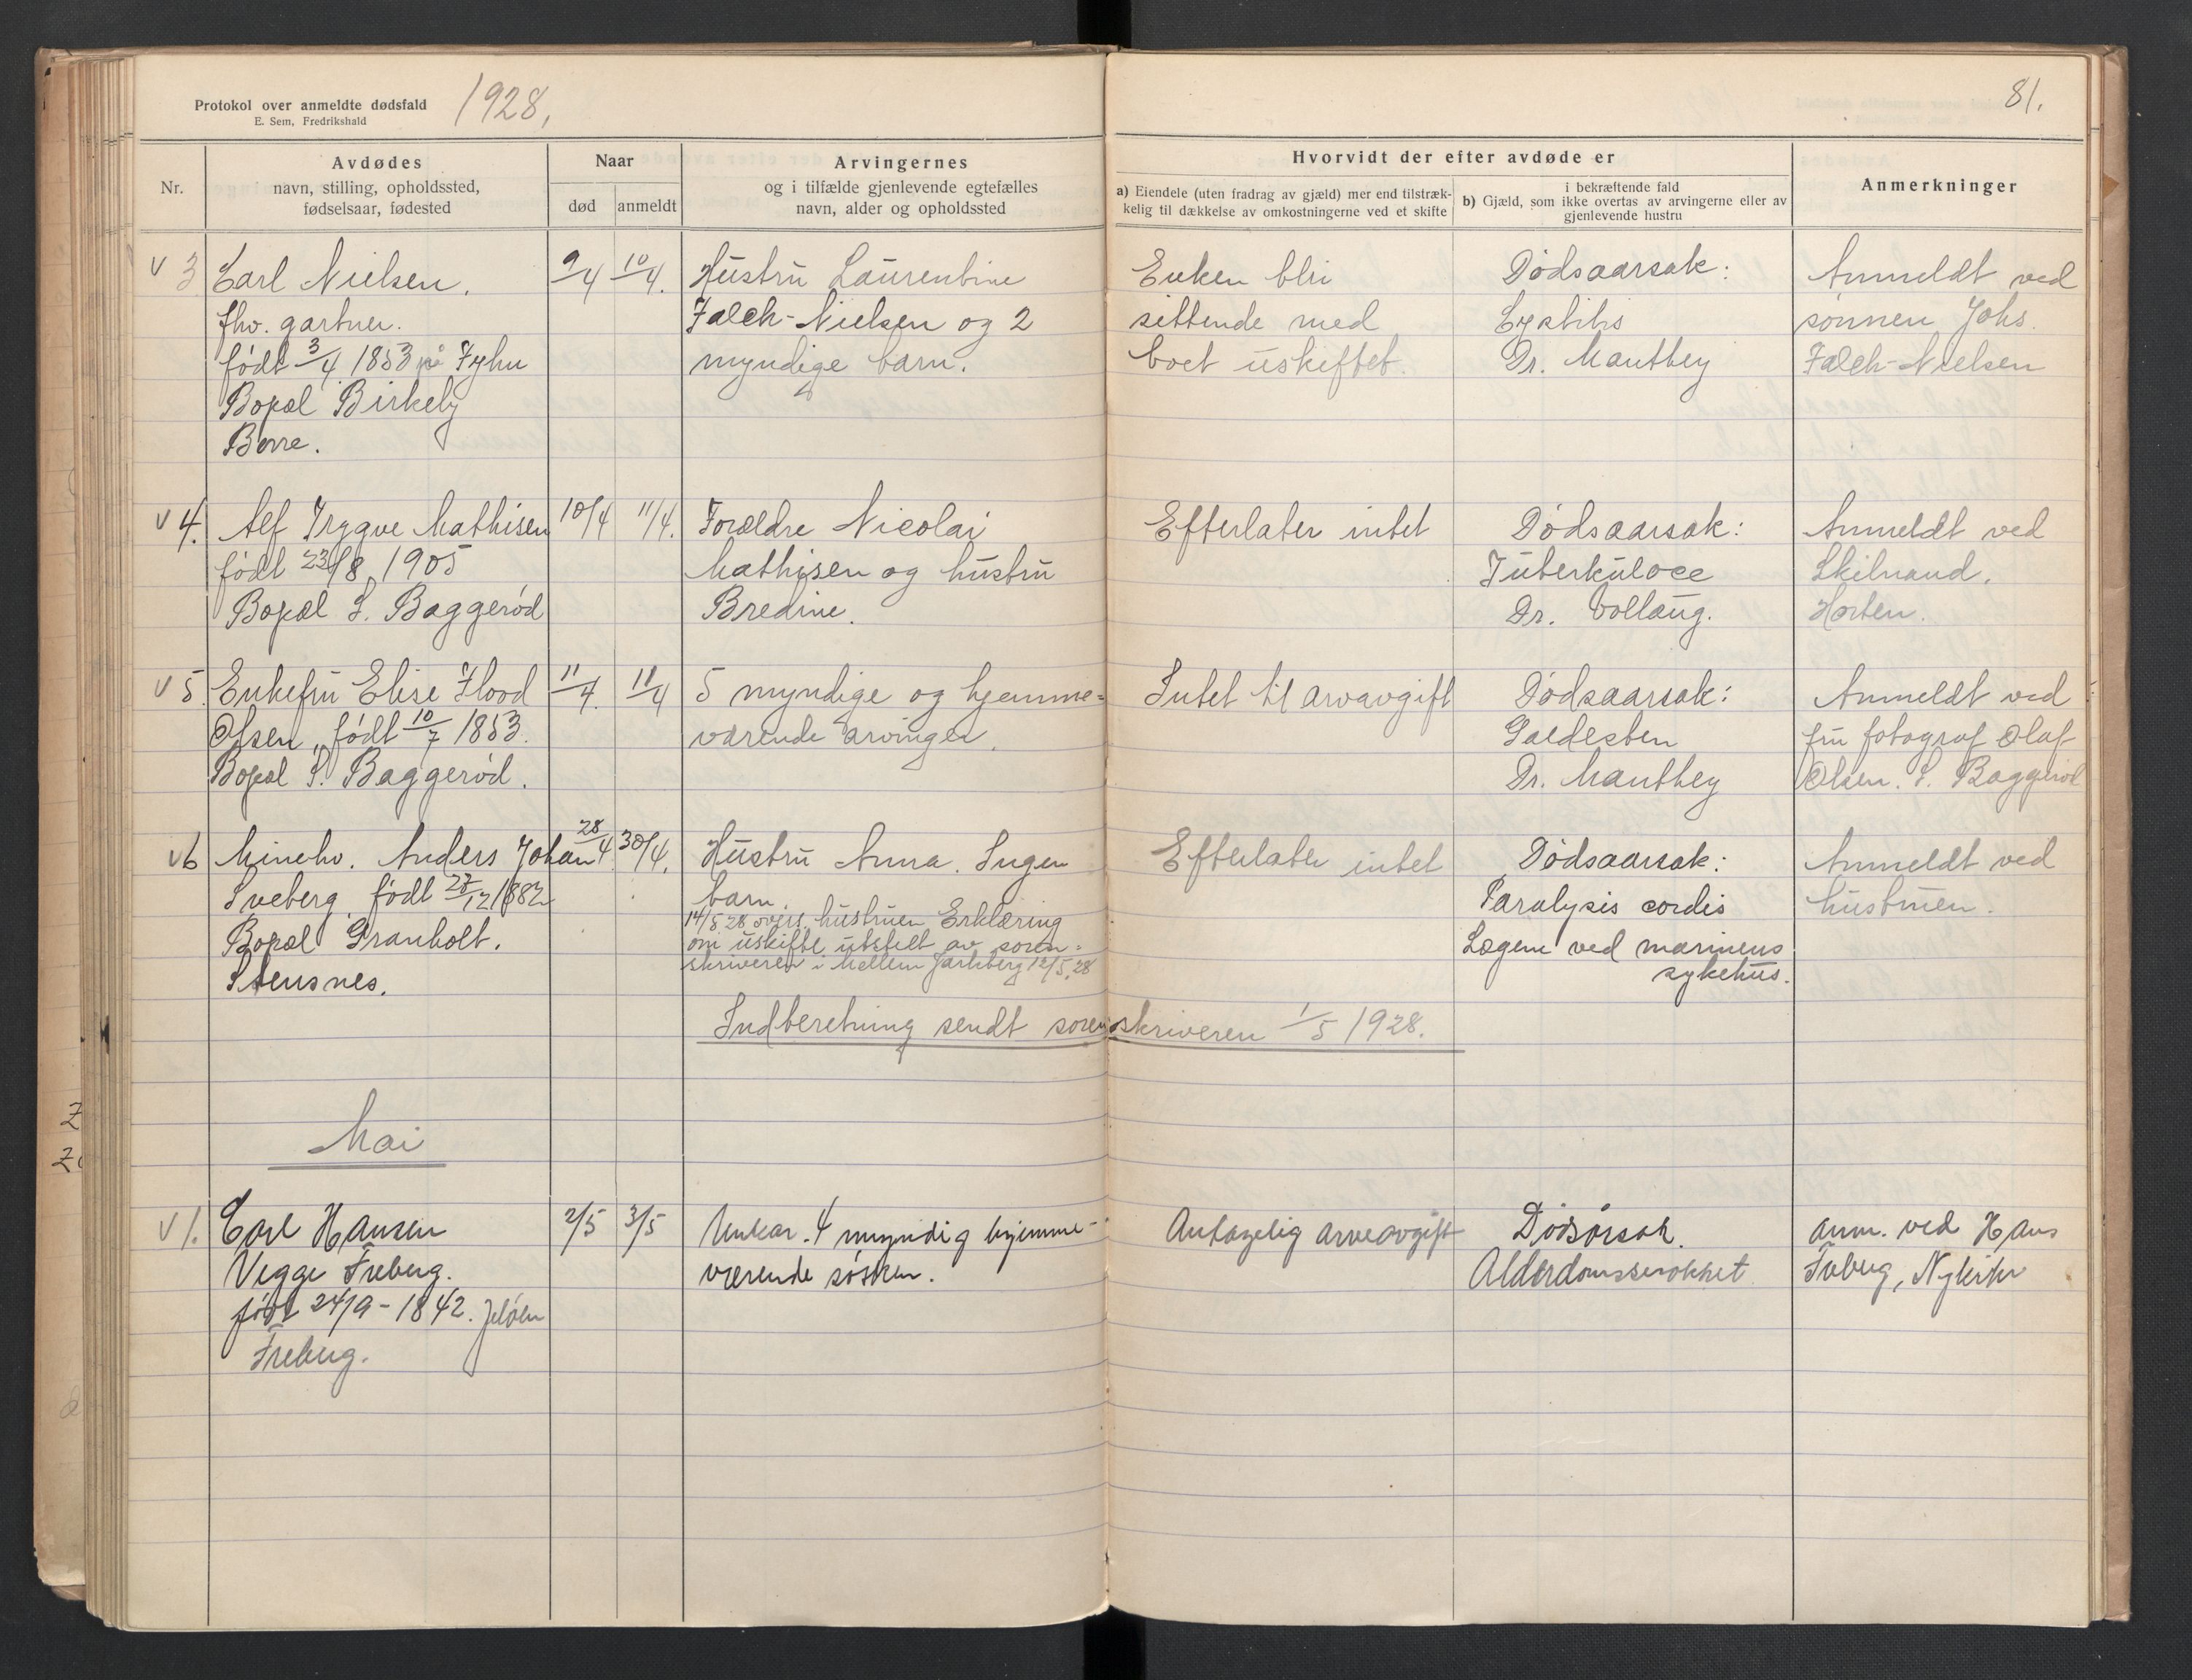 Protokol over anmeldte dødsfald
E. Sem, Fredrikshald
1928,
81.
Nr.
Avdødes
navn, stilling, opholdssted,
fødselsaar, fødested
Naar
død
anmeldt
Arvingernes
og i tilfælde gjenlevende egtefælles
navn, alder og opholdssted
Hvorvidt der efter avdøde er
a) Eiendele (uten fradrag av gjæld) mer end tilstræk-
kelig til dækkelse av omkostningerne ved et skifte
i bekræftende fald
b) Gjæld, som ikke overtas av arvingerne eller av
gjenlevende hustru
Anmerkninger
v 3.
Carl Nielsen.
fhv. gartner.
født 3/4 1853 på Fyhn
Bopæl Birkely
Borre.
9/4
10/4.
Hustru Laurentine
Falch-Nielsen og 2
myndige barn.
Enken bli
sittende med
boet uskiftet.
Dødsaarsak:
Cystitis
Dr. Manthey
Anmeldt ved
sønnen Johs.
Falch-Nielsen
v 4.
Alf Trygve Mathisen
født 23/8 1905
Bopæl S. Baggerød
10/4
11/4.
Forældre Nicolai
Mathisen og hustru
Bredine.
Efterlater intet
Dødsaarsak:
Tuberkulose
Dr. Vollaug.
Anmeldt ved
Skilnand.
Horten.
v 5.
Enkefru Elise Flood
Olsen, født 10/7 1853.
Bopæl S. Baggerød.
11/4.
11/4
5 myndige og hjemme=
værende arvinger.
Intet til arvavgift
Dødsaarsak:
Galdesten
Dr. Manthey
Anmeldt ved
fru fotograf Olaf
Olsen. S. Baggerød
v 6
Minehv. Anders Johan
Sveberg født 27/12 1882
Bopæl Granholt.
Stensnes.
28/4.
30/4.
Hustru Anna. Ingen
barn.
14/5 28 overs. hustruen Erklæring
om uskifte utstelt av soren=
skriveren i Mellem Jarlsberg 12/5.28
Efterlater intet
Dødsaarsak:
Paralysis cordis
Lægene ved marinens
sykehus.
Anmeldt ved
hustruen.
Indberetning sendt sorenskriveren 1/5 1928.
Mai
v 1.
Carl Hansen
Vegge Freberg.
født 24/9-1842. Jeløen
Freberg.
2/5
3/5
Unkar. 4 myndig hjemme-
værende søsken.
Antagelig arveavgift
Dødsårsak.
Alderdomssvakhet
anm. ved Hans
Freberg, Nykirke